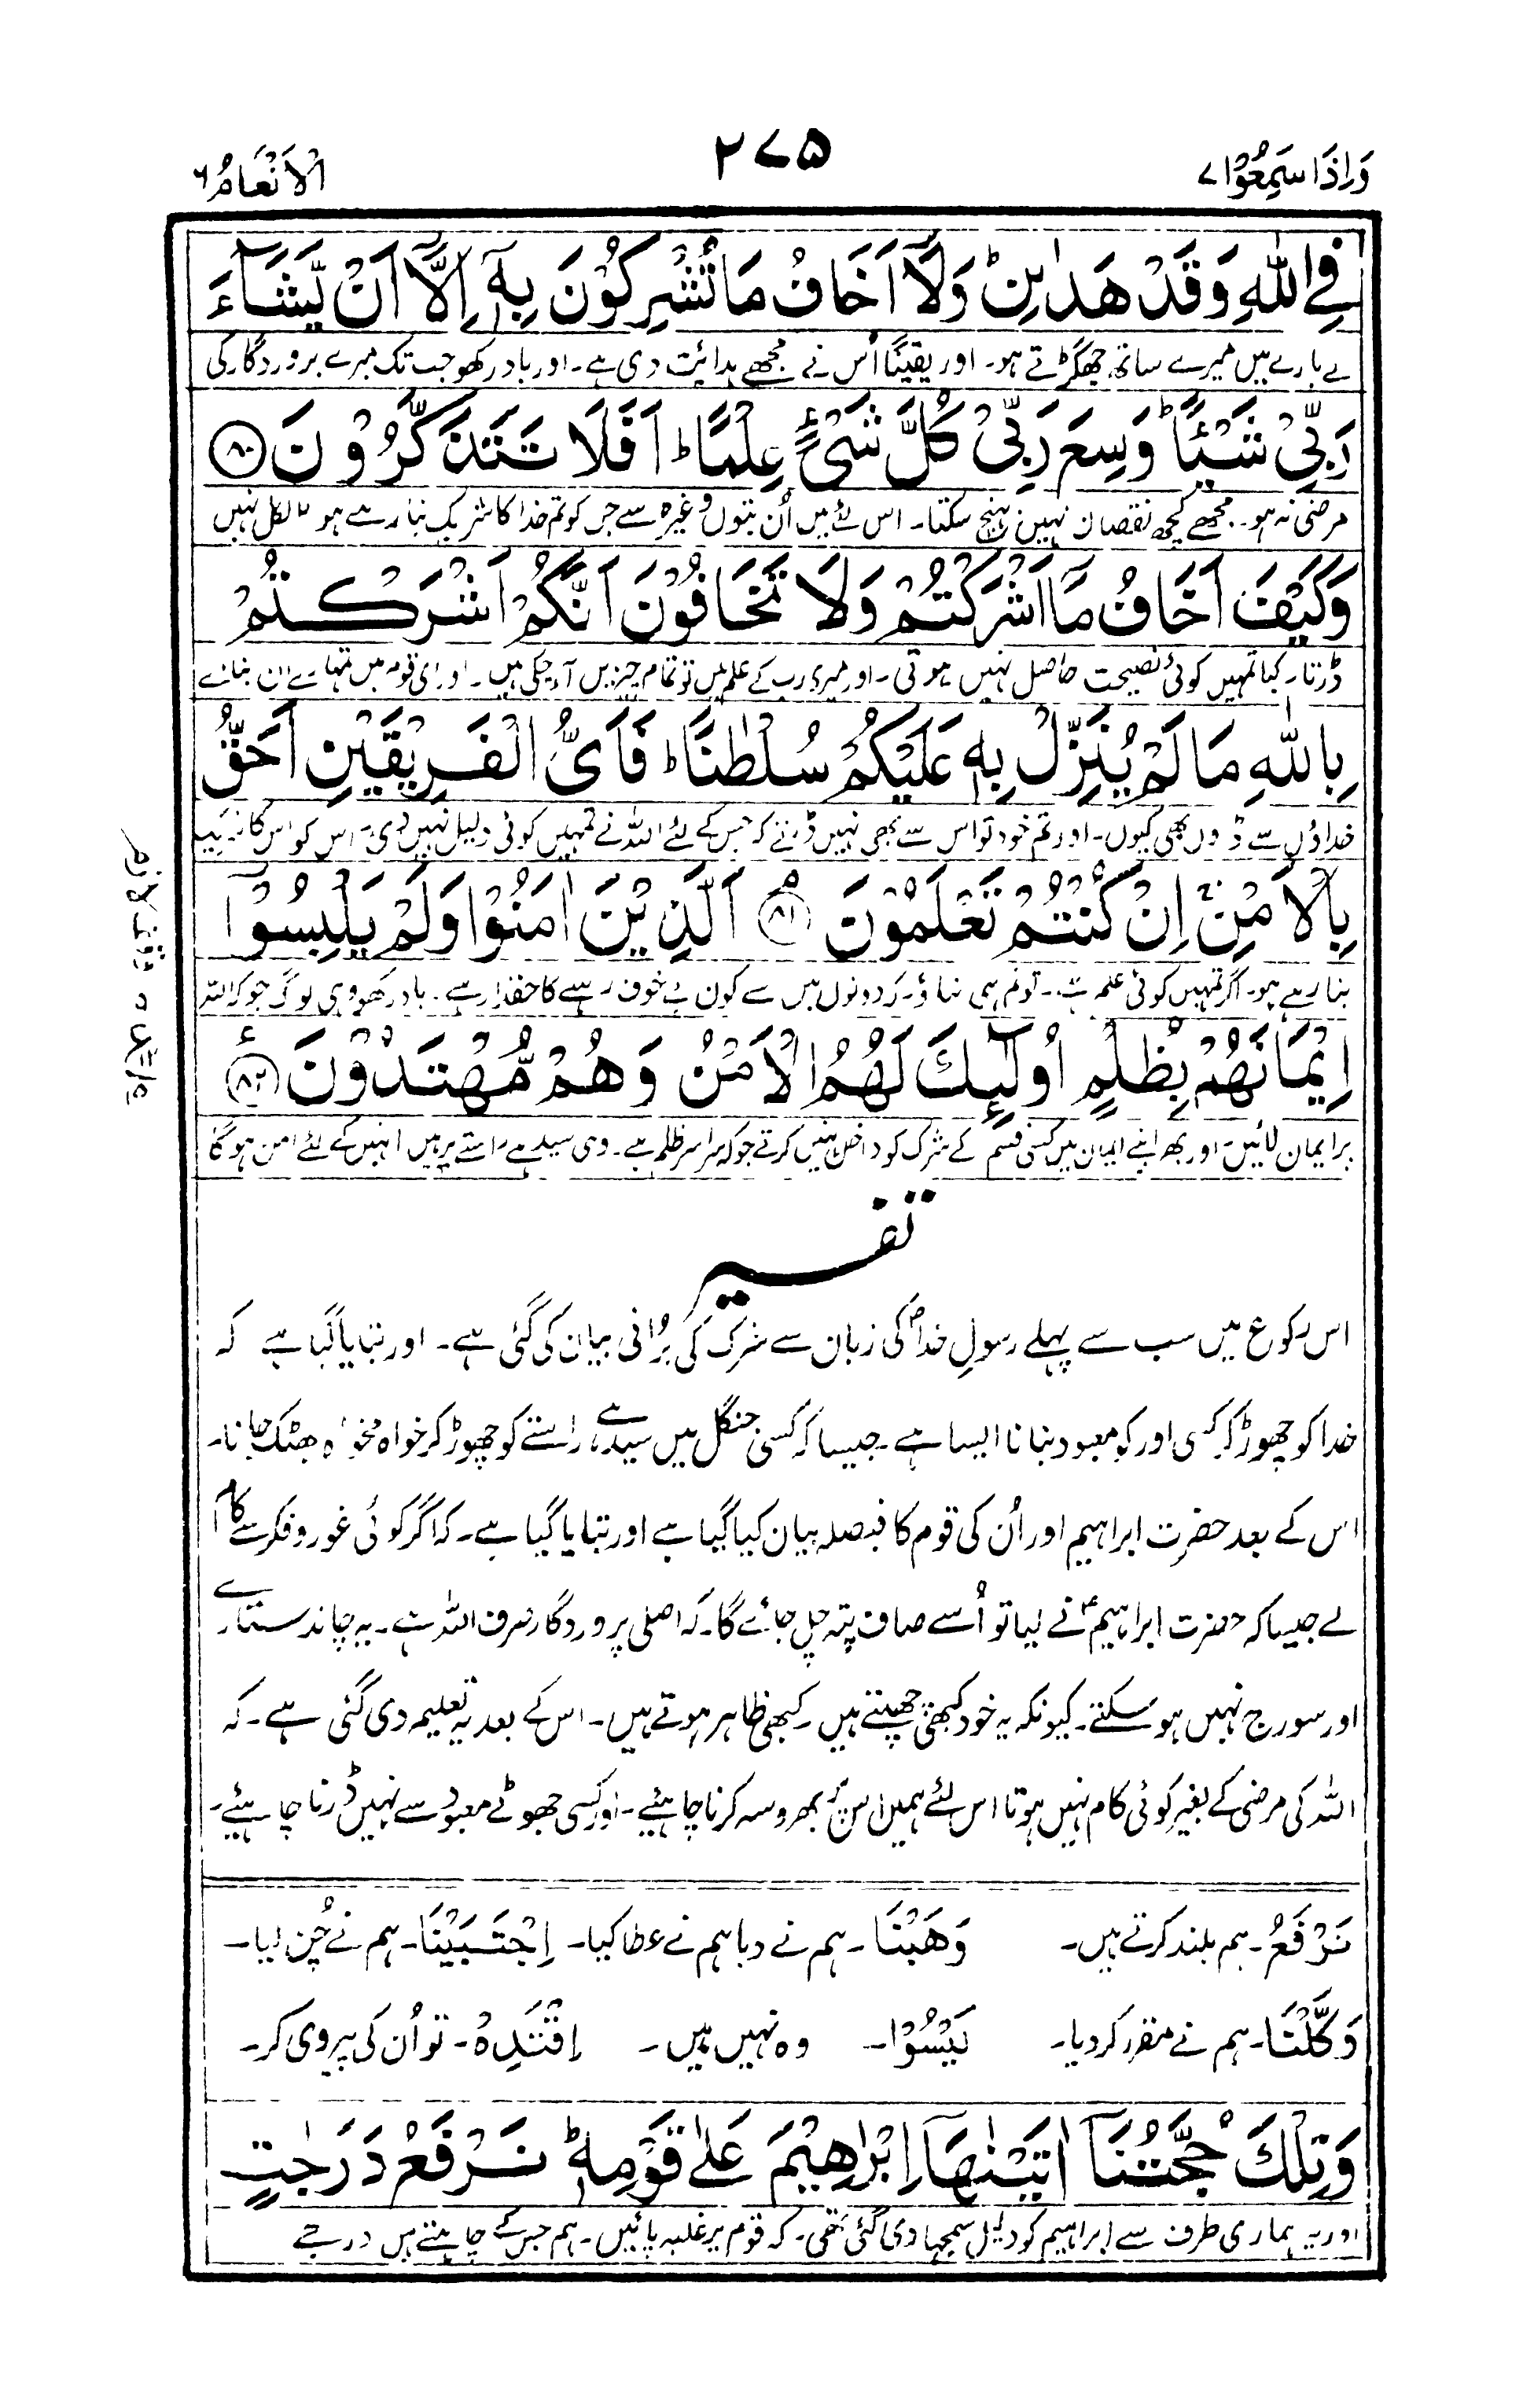 وَاِذَا سَمِعُوْا ۷
۲۷۵
الْاَنْعَامُ ۶
فِی اللّٰهِ وَقَدْ هَدٰىنِ ؕ وَلَاۤ اَخَافُ مَا تُشْرِكُوْنَ بِهٖۤ اِلَّاۤ اَنْ یَّشَآءَ
کے بارے میں میرے ساتھ جھگڑتے ہو۔ اور یقیناً اُس نے مجھے ہدائیت دی ہے۔ اور یاد رکھو جب تک میرے پروردگار کی
رَبِّیْ شَیْـًٔا ؕ وَسِعَ رَبِّیْ كُلَّ شَیْءٍ عِلْمًا ؕ اَفَلَا تَتَذَكَّرُوْنَ ﴿۸۰﴾
مرضی نہ ہو۔ مجھے کچھ نقصان نہیں پہنچ سکتا۔ اس لئے میں اُن بتوں وغیرہ سے جس کو تم خدا کا شریک بنا رہے ہو بالکل نہیں
وَكَیْفَ اَخَافُ مَاۤ اَشْرَكْتُمْ وَلَا تَخَافُوْنَ اَنَّكُمْ اَشْرَكْتُمْ
ڈرتا۔ کیا تمہیں کوئی نصیحت حاصل نہیں ہوتی۔ اور میری رب کے علم میں تو تمام چیزیں آ چکی ہیں۔ اور اے قوم میں تمہارے ان بنائے
بِاللّٰهِ مَا لَمْ یُنَزِّلْ بِهٖ عَلَیْكُمْ سُلْطٰنًا ؕ فَاَیُّ الْفَرِیْقَیْنِ اَحَقُّ
خداؤں سے ڈروں بھی کیوں۔ اور تم خود تو اس سے بھی نہیں ڈرتے کہ جس کے لئے اللہ نے تمہیں کوئی دلیل نہیں دی۔ اس کو اس کا شریک
بِالْاَمْنِ ۚ اِنْ كُنْتُمْ تَعْلَمُوْنَ ﴿۸۱﴾ اَلَّذِیْنَ اٰمَنُوْا وَلَمْ یَلْبِسُوْۤا
بنا رہے ہو۔ اگر تمہیں کوئی علم ہے۔ تو تم ہی بتاؤ۔ کہ دونوں میں سے کون بے خوف رہنے کا حقدار ہے۔ یاد رکھو وہی لوگ جو کہ اللہ
اِیْمَانَهُمْ بِظُلْمٍ اُولٰٓئِكَ لَهُمُ الْاَمْنُ وَهُمْ مُّهْتَدُوْنَ ﴿۸۲﴾ ع
پر ایمان لائیں۔ اور پھر اپنے ایمان میں کسی قسم کے شرک کو داخل نہیں کرتے جو کہ سراسر ظلم ہے۔ وہی سیدھے راستے پر ہیں انہیں کے لئے امن ہوگا
تفسیر
اس رکوع میں سب سے پہلے رسولِ خداؐ کی زبان سے شرک کی بُرائی بیان کی گئی ہے۔ اور بتایا گیا ہے کہ
خدا کو چھوڑ کر کسی اور کو معبود بنانا ایسا ہے۔ جیسا کہ کسی جنگل میں سیدھے راستے کو چھوڑ کر خواہ مخواہ بھٹک جانا۔
اس کے بعد حضرت ابراہیم اور اُن کی قوم کا فیصلہ بیان کیا گیا ہے اور بتایا گیا ہے۔ کہ اگر کوئی غور و فکر سے کام
لے جیسا کہ حضرت ابراہیمؑ نے لیا تو اُسے صاف پتہ چل جائے گا۔ کہ اصلی پروردگار صرف اللہ ہے۔ یہ چاند ستارے
اور سورج نہیں ہو سکتے۔ کیونکہ یہ خود کبھی چھپتے ہیں۔ کبھی ظاہر ہوتے ہیں۔ اس کے بعد یہ تعلیم دی گئی ہے۔ کہ
اللہ کی مرضی کے بغیر کوئی کام نہیں ہوتا اس لئے ہمیں اس پر بھروسہ کرنا چاہیئے۔ اور کسی جھوٹے معبود سے نہیں ڈرنا چاہیئے۔
نَرْفَعُ۔ ہم بلند کرتے ہیں۔ وَهَبْنَا۔ ہم نے دیا ہم نے عطا کیا۔ اِجْتَبَیْنَا۔ ہم نے چُن لیا۔
وَكَّلْنَا۔ ہم نے مقرر کر دیا۔ لَیْسُوْا۔ وہ نہیں ہیں۔ اِقْتَدِهْ۔ تو اُن کی پیروی کر۔
وَتِلْكَ حُجَّتُنَاۤ اٰتَیْنٰهَاۤ اِبْرٰهِیْمَ عَلٰى قَوْمِهٖ ؕ نَرْفَعُ دَرَجٰتٍ
اور یہ ہماری طرف سے ابراہیم کو دلیل سمجھا دی گئی تھی۔ کہ قوم پر غلبہ پائیں۔ ہم جس کے چاہتے ہیں درجے